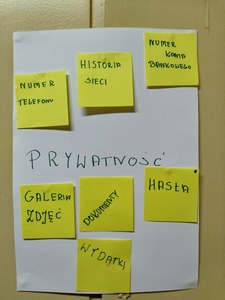 NUMER
TELEFONU
HISTÓRIA
SIECI
NUMER
KONTA
BANKOWEGO
PRYWATNOŚĆ
GALERIA
ZDJĘĆ
DOKUMENTY
HASŁA
WYDATKI